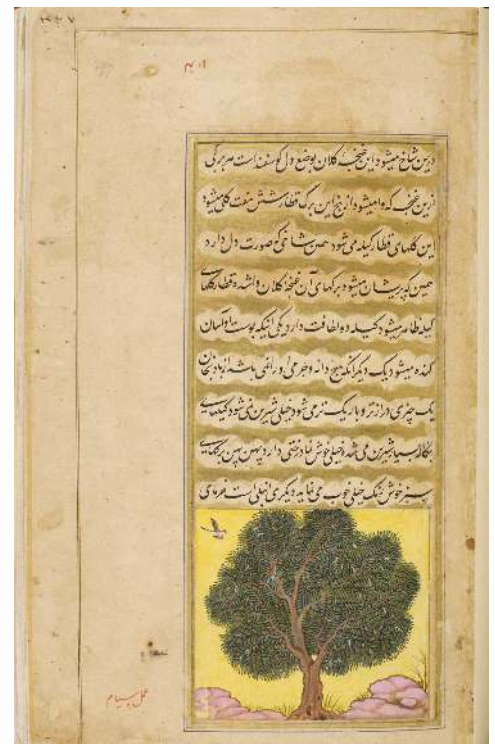 درین شاخ میشود این غنچه کلان بوضع دل کوسفند است هر برکی
ازین غنچه که وا میشود از بیخ این برک قطار شش هفت کلی میشود
این کلهای قطار کیله می شود همین شاخی که صورت دل دارد
همین که پریشان میشود برکهای آن غنچه کلان وا شده قطار کلهای
کیله ظاهر میشود کیله دو لطافت دارد یکی انیکه پوست او آسان
کنده میشود یک دیکر انکه هیچ دانه و جرمی او را نمی باشد از بادنجان
یک چیزی درازتر و باریک تر می شود خیلی شیرین نمی شود کیلهای
بنکاله بسیار شیرین می شده خیلی خوش نما درختی دارد پهن پهن برکهای
سبز خوش رنک خیلی خوب می نماید دیکری انبلی است خرمای
عمل